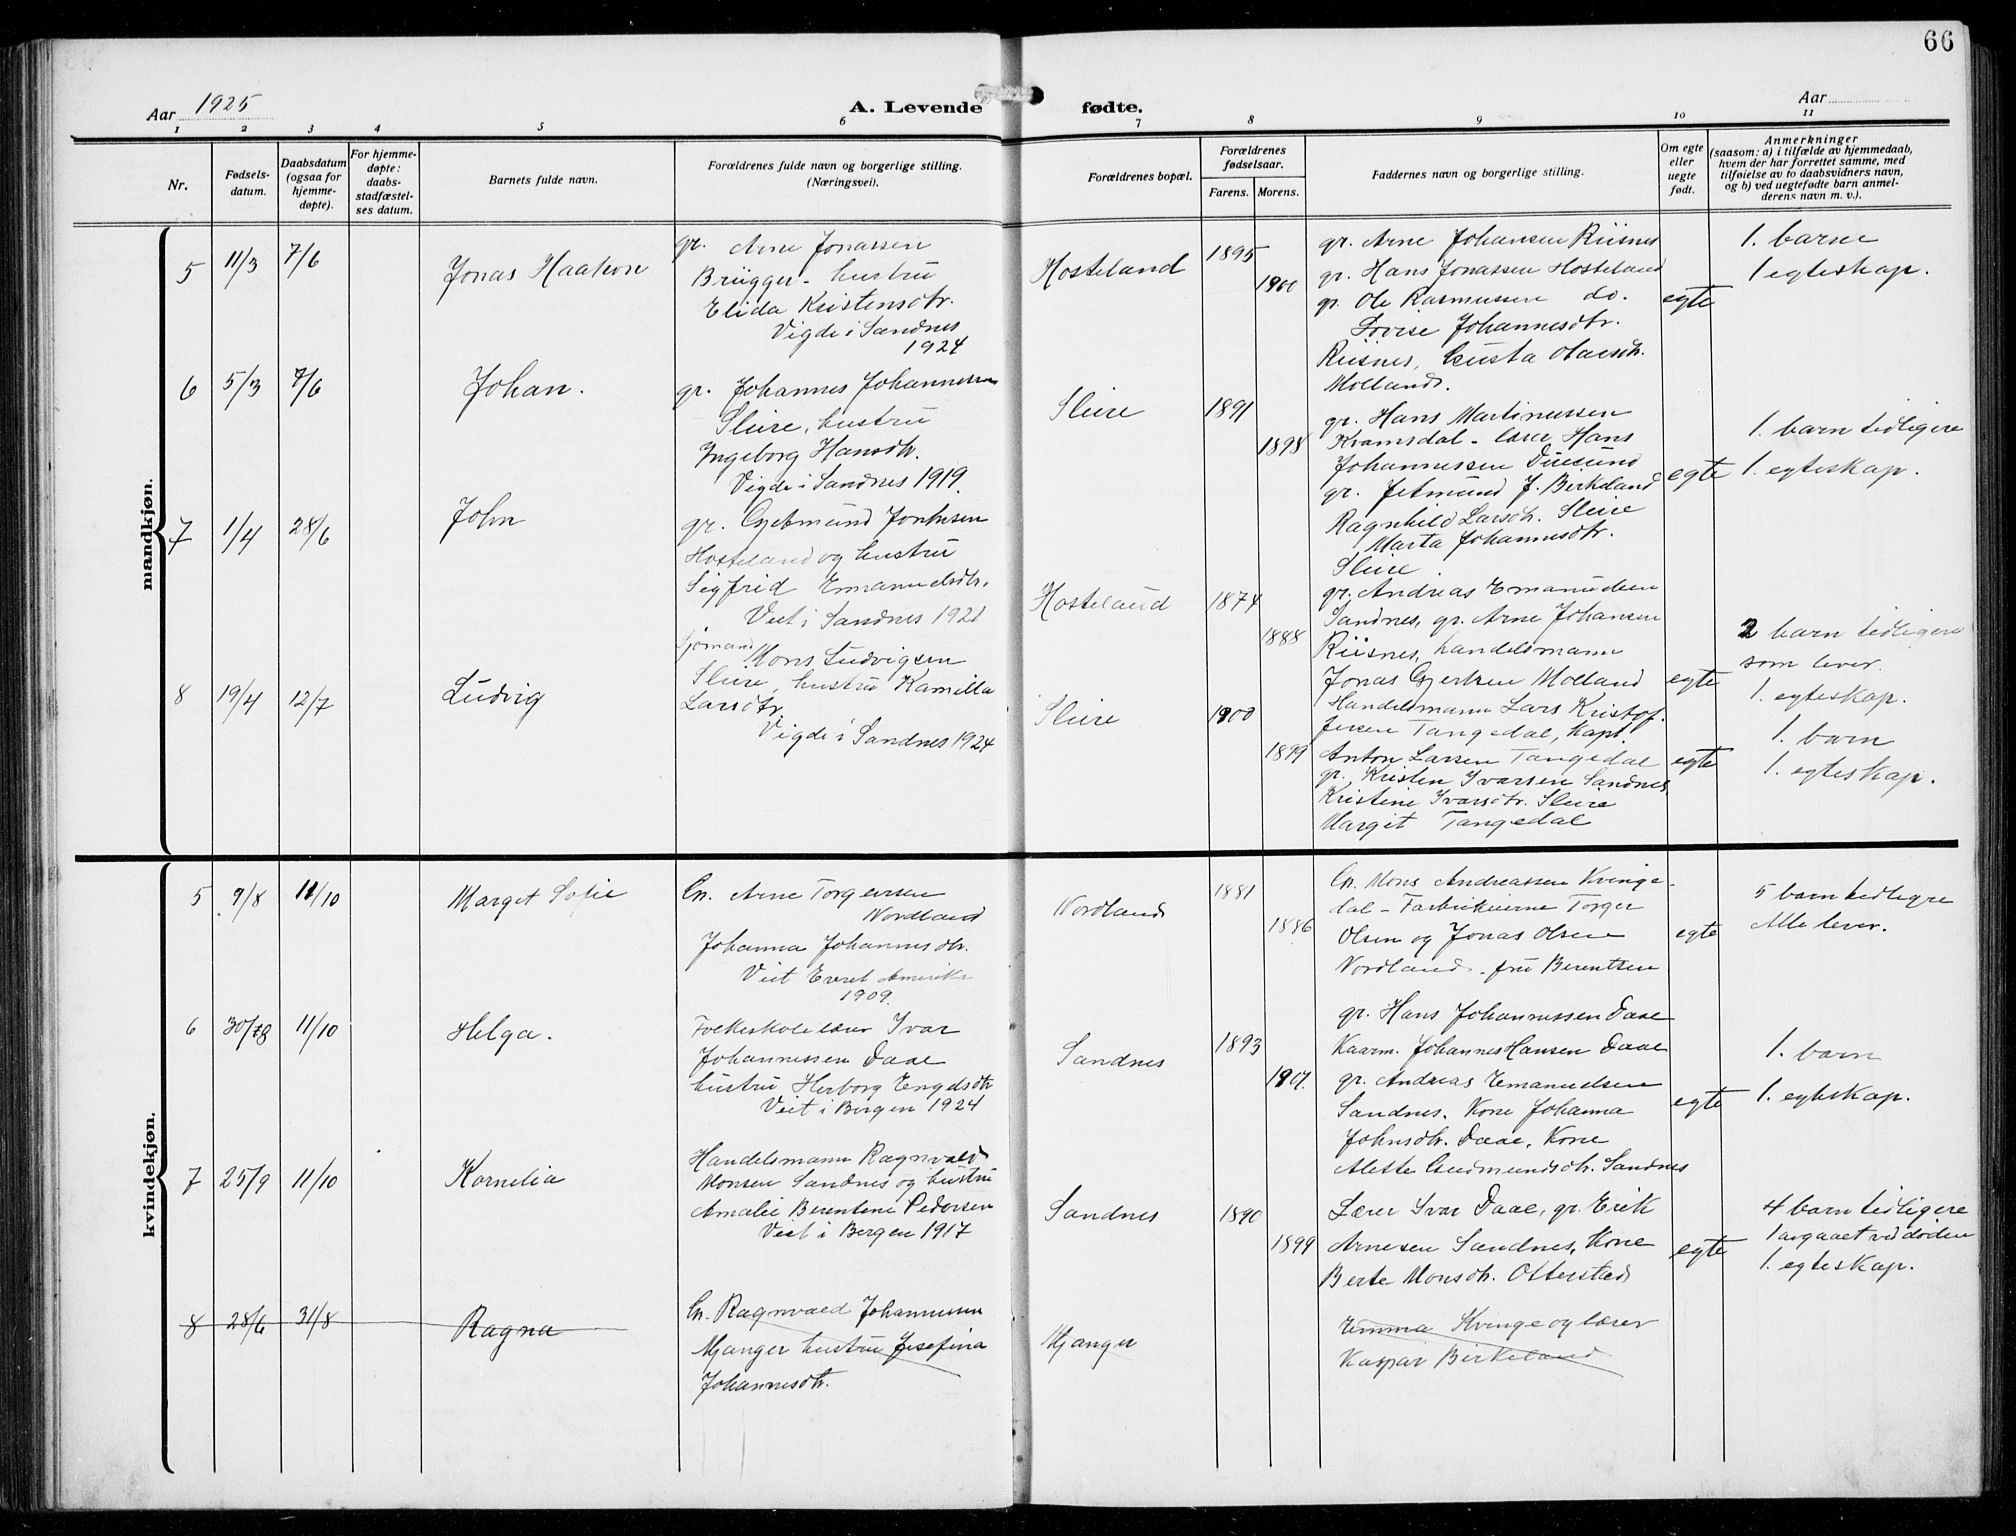 66
Aar 1925
A. Levende fødte.
Aar
1 2 3 4 5 6 7 8 9 10 11
Nr.
Fødsels-
datum.
Daabsdatum
(ogsaa for
hjemme-
døpte).
For hjemme-
døpte:
daabs-
stadfæstel-
ses datum.
Barnets fulde navn.
Forældrenes fulde navn og borgerlige stilling.
(Næringsvei).
Forældrenes bopæl.
Forældrenes
fødselsaar.
Farens. Morens.
Faddernes navn og borgerlige stilling.
Om egte
eller
uegte
født.
Anmerkninger
(saasom: a) i tilfælde av hjemmedaab,
hvem der har forrettet samme, med
tilføielse av to daabsvidners navn,
og b) ved uegtefødte barn anmel-
derens navn m. v.).
mandkjøn.
5 11/3 7/6 Jonas Haakon
gr. Arne Jonassen
Brügger - hustru
Elida Kristensdtr.
Vigde i Sandnes
1924
Hosteland 1895 1900
gr. Arne Johansen Riisnes
gr. Hans Jonassen Hosteland
gr. Ole Rasmussen do.
Lovise Johannesdtr.
Riisnes, Gusta Olaisdtr.
Molland.
egte
1. barn
1 egteskap.
6 5/3 7/6 Johan.
gr. Johannes Johannessen
Sleire, hustru
Ingeborg Hansdtr.
Vigde i Sandnes 1919.
Sleire 1891 1898
gr. Hans Martinussen
Kramsdal - lærer Hans
Johannessen Duesund
gr. Jetmund J. Birkeland
Ragnhild Larsdtr. Sleire
Marta Johannesdtr.
Sleire
egte
1. barn tidligere
1. egteskap.
7 1/4 28/6 John
gr. Gjetmund Jonsen
Hosteland og hustru
Sigfrid Emanuelsdtr.
Viet i Sandnes 1921
Hosteland 1874 1888
gr. Andreas Emanuelsen
Sandnes, gr. Arne Johansen
Riisnes, handelsmann
Jonas Gjertsen Molland
egte
2 barn tidligere
som lever.
1. egteskap.
8 19/4 12/7 Ludvig
Sjømand
Mons Ludvigsen
Sleire, hustru Kamilla
Larsdtr.
Vigde i Sandnes 1924
Sleire 1900 1899
Handelsmann Lars Kristof-
fersen Tangedal, Kapt.
Anton Larsen Tangedal
gr. Kristen Ivarsen Sandnes
Kristine Ivarsdtr. Sleire
Margit Tangedal
egte
1. barn
1. egteskap.
kvindekjøn.
5 9/8 11/10 Marget Sofie
Gr. Arne Torgersen
Nordland
Johanna Johannesdtr.
Viet Everet Amerika
1909.
Nordland 1881 1886
Gr. Mons Andreassen Kvinge-
dal - Fabrikeierne Torger
Olsen og Jonas Olsen
Nordland - fru Berentsen
egte
5 barn tidligre
Alle lever.
6 30/8 11/10 Helga.
Folkeskolelærer Ivar
Johannessen Daae
hustru Herborg Engelsdtr
Viet i Bergen 1924
Sandnes 1893 1901.
gr. Hans Johannessen Daae
Kaarm. Johannes Hansen Daae
gr. Andreas Emanuelsen
Sandnes. Kone Johanna
Johnsdtr. Daae, Kone
Alette Gudmundsdtr. Sandnes
egte
1. barn
1. egteskap.
7 25/9 11/10 Kornelia
Handelsmann Ragnvald
Monsen Sandnes og hustru
Amalie Berentine Pedersen
Viet i Bergen 1917
Sandnes 1890 1899
Lærer Ivar Daae, gr. Erik
Arnesen Sandnes, Kone
Berte Monsdtr. Otterstad
egte
4 barn tidligere
1 avgaaet ved døden
1. egteskap.
8 28/6 31/8 Ragna
Gr. Ragnvald Johannessen
Mjanger hustru Josefina
Johannesdtr.
Mjanger
Emma Kvinge og lærer
Kaspar Birkeland